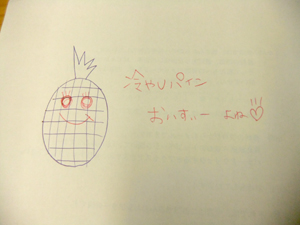 冷やしパイン
おいすぃー よね♡